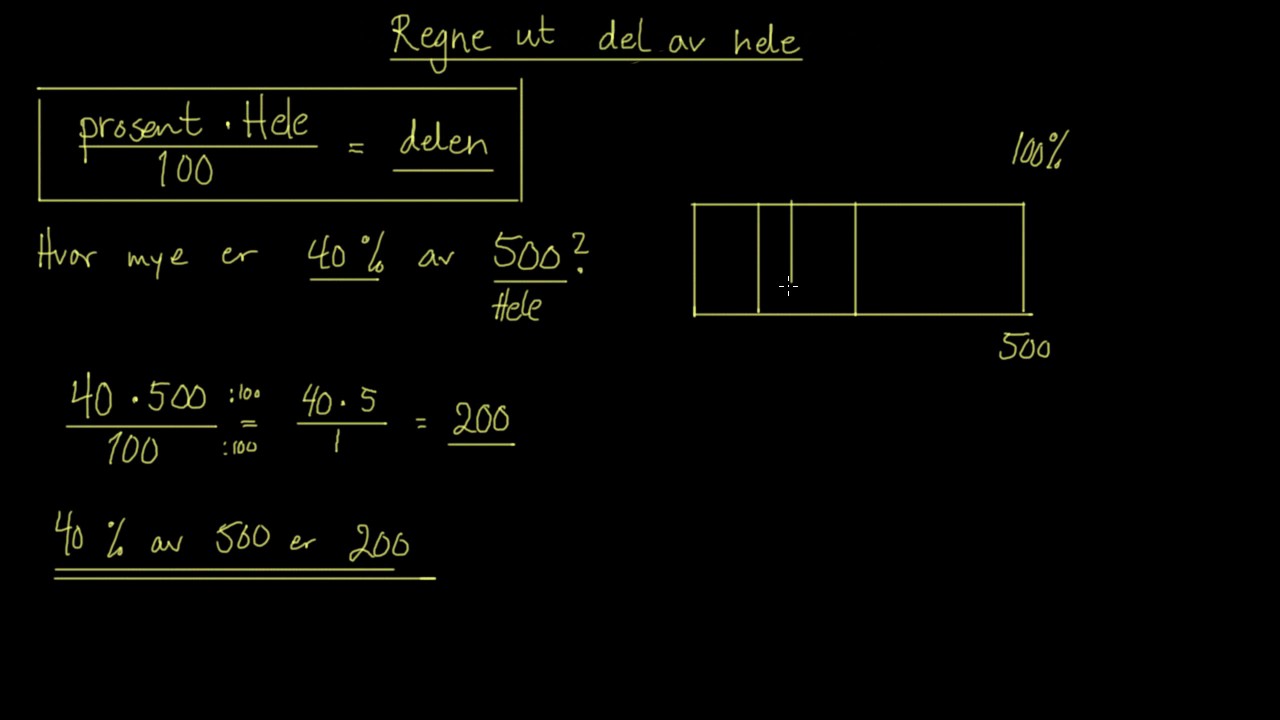 Regne ut del av hele
prosent · Hele
100
= delen
100%
Hvor mye er 40% av 500?
Hele
500
40 · 500 :100
100 :100
=
40 · 5
1
= 200
40 % av 500 er 200